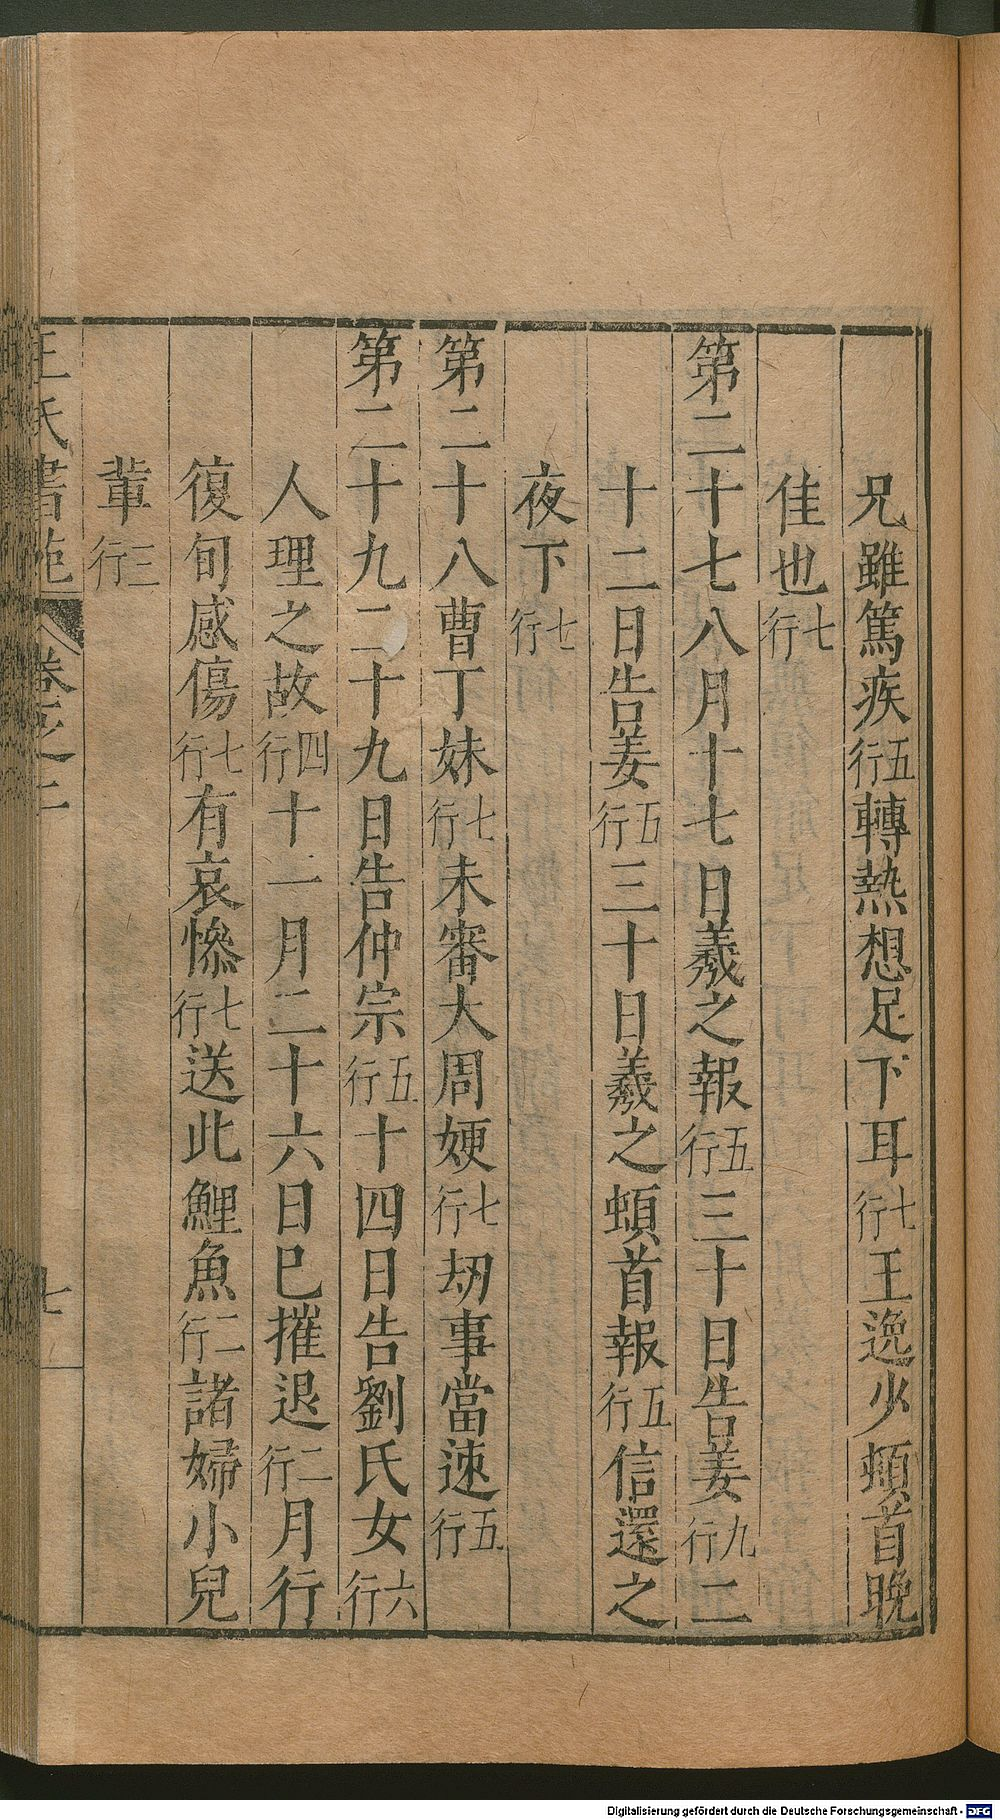 兄雖篤疾五行轉熱想足下耳七行王逸少頓首晚
佳也七行
第二十七八月十七日羲之報五行三十日告姜九行二
十二日告姜五行三十日羲之頓首報五行信還之
夜下七行
第二十八曹丁妹七行未審大周㛐七行刼事當速五行
第二十九二十九日告仲宗五行十四日告劉氏女六行
人理之故四行十一月二十六日巳摧退二行月行
復旬感傷七行有哀慘七行送此鯉魚二行諸婦小兒
輩三行
王氏書苑 卷之二 七
Digitalisierung gefördert durch die Deutsche Forschungsgemeinschaft - DFG